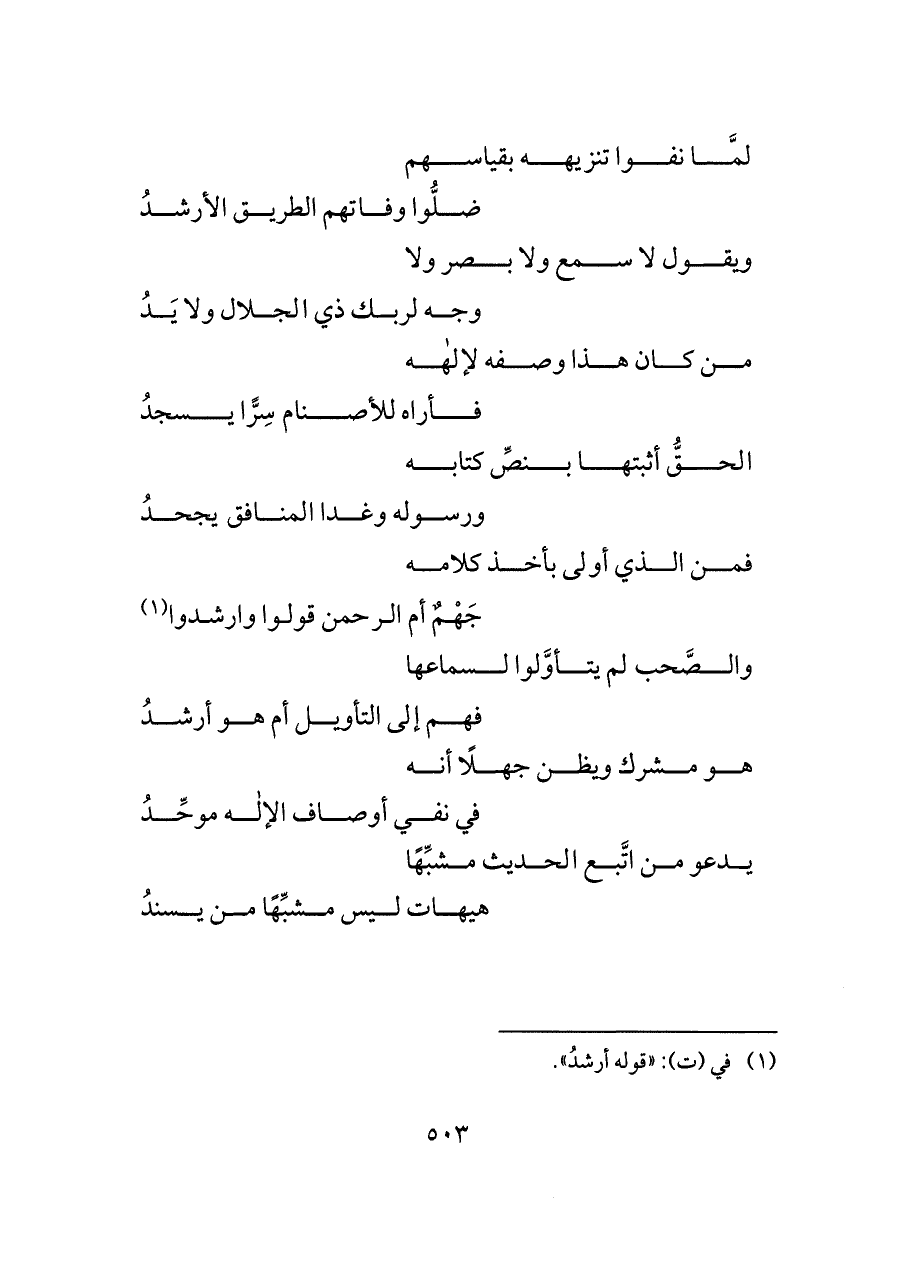 لمَّا نفوا تنزيهه بقياسهم
ضلُّوا وفاتهم الطريق الأرشدُ
ويقول لا سمع ولا بصر ولا
وجه لربك ذي الجلال ولا يَدُ
من كان هذا وصفه لإلٰهه
فأراه للأصنام سِرًّا يسجدُ
الحقُّ أثبتها بنصِّ كتابه
ورسوله وغدا المنافق يجحدُ
فمن الذي أولى بأخذ كلامه
جَهْمٌ أم الرحمن قولوا وارشدوا(١)
والصَّحب لم يتأوَّلوا لسماعها
فهم إلى التأويل أم هو أرشدُ
هو مشرك ويظن جهلًا أنه
في نفي أوصاف الإلٰه موحِّدُ
يدعو من اتَّبع الحديث مشبِّهًا
هيهات ليس مشبِّهًا من يسندُ
(١) في (ت): «قوله أرشدُ».
٥٠٣